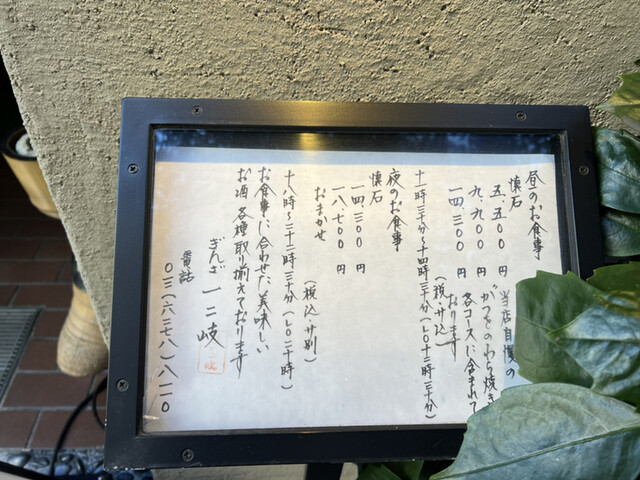 昼のお食事
懐石
五、五〇〇円
九、九〇〇円
一四、三〇〇円
当店自慢の
がつをのわら焼き
各コースに含まれて
おります
(税・サ込)
十一時三十分〜十四時三十分(LO十二時三十分)
夜のお食事
懐石
一四、三〇〇円
おまかせ
一八、七〇〇円
(税込・サ別)
十八時〜二十二時三十分(LO二十時)
お食事に合わせた美味しい
お酒各種取り揃えております
ぎんざ 一二岐
電話
〇三(六二七八)八一一〇